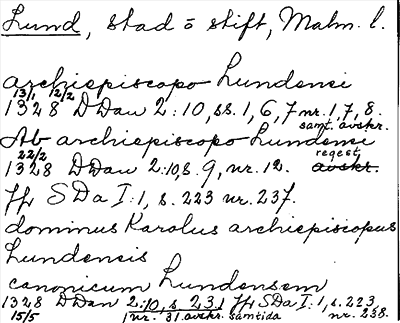 Lund, stad o stift, Malm. l.
archiepiscopo Lundensi
13/1 12/2
1328 DDan 2:10, ss. 1, 6, 7 nr. 1, 7, 8.
samt. avskr.
Ab archiepiscopo Lundensi
22/2 regest
1328 DDan 2:10, s. 9, nr. 12. avskr.
Jfr SDa I:1, s. 223 nr. 237.
dominus Karolus archiepiscopus
Lundensis
canonicum Lundensem
1328 DDan 2:10, s. 23 Jfr SDa I:1, s. 223
15/5 nr. 31. avskr. samtida nr. 238.